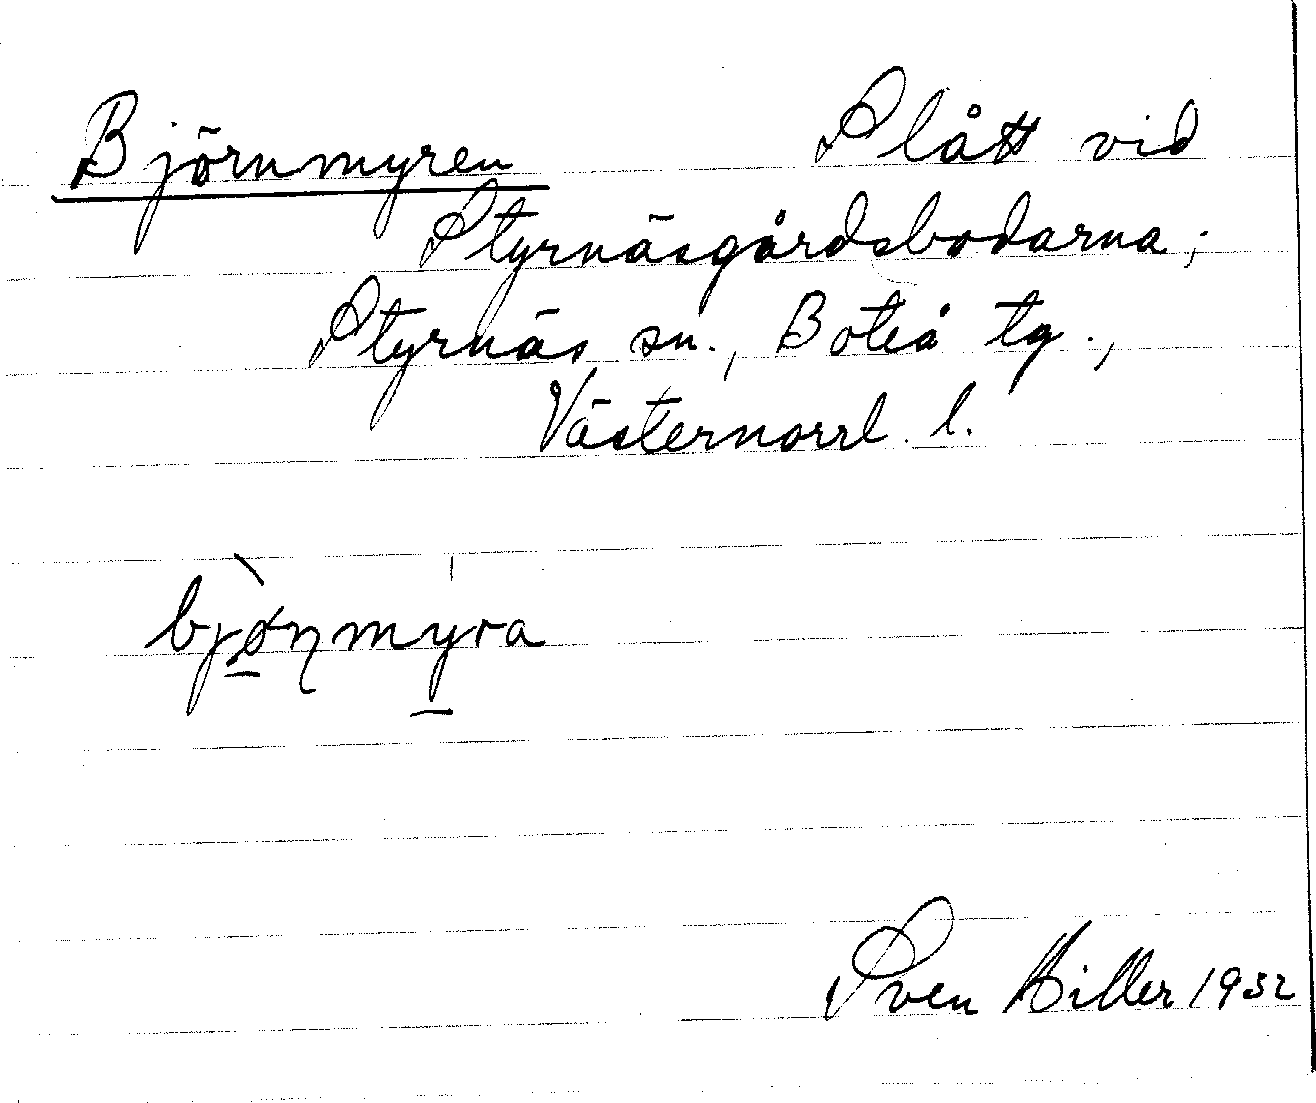 Björnmyren Slått vid
Styrnäsgårdsbodarna;
Styrnäs sn., Boteå tg.,
Västernorrl. l.
bjø̠̀ŋmy̠ra
Sven Hiller 1932